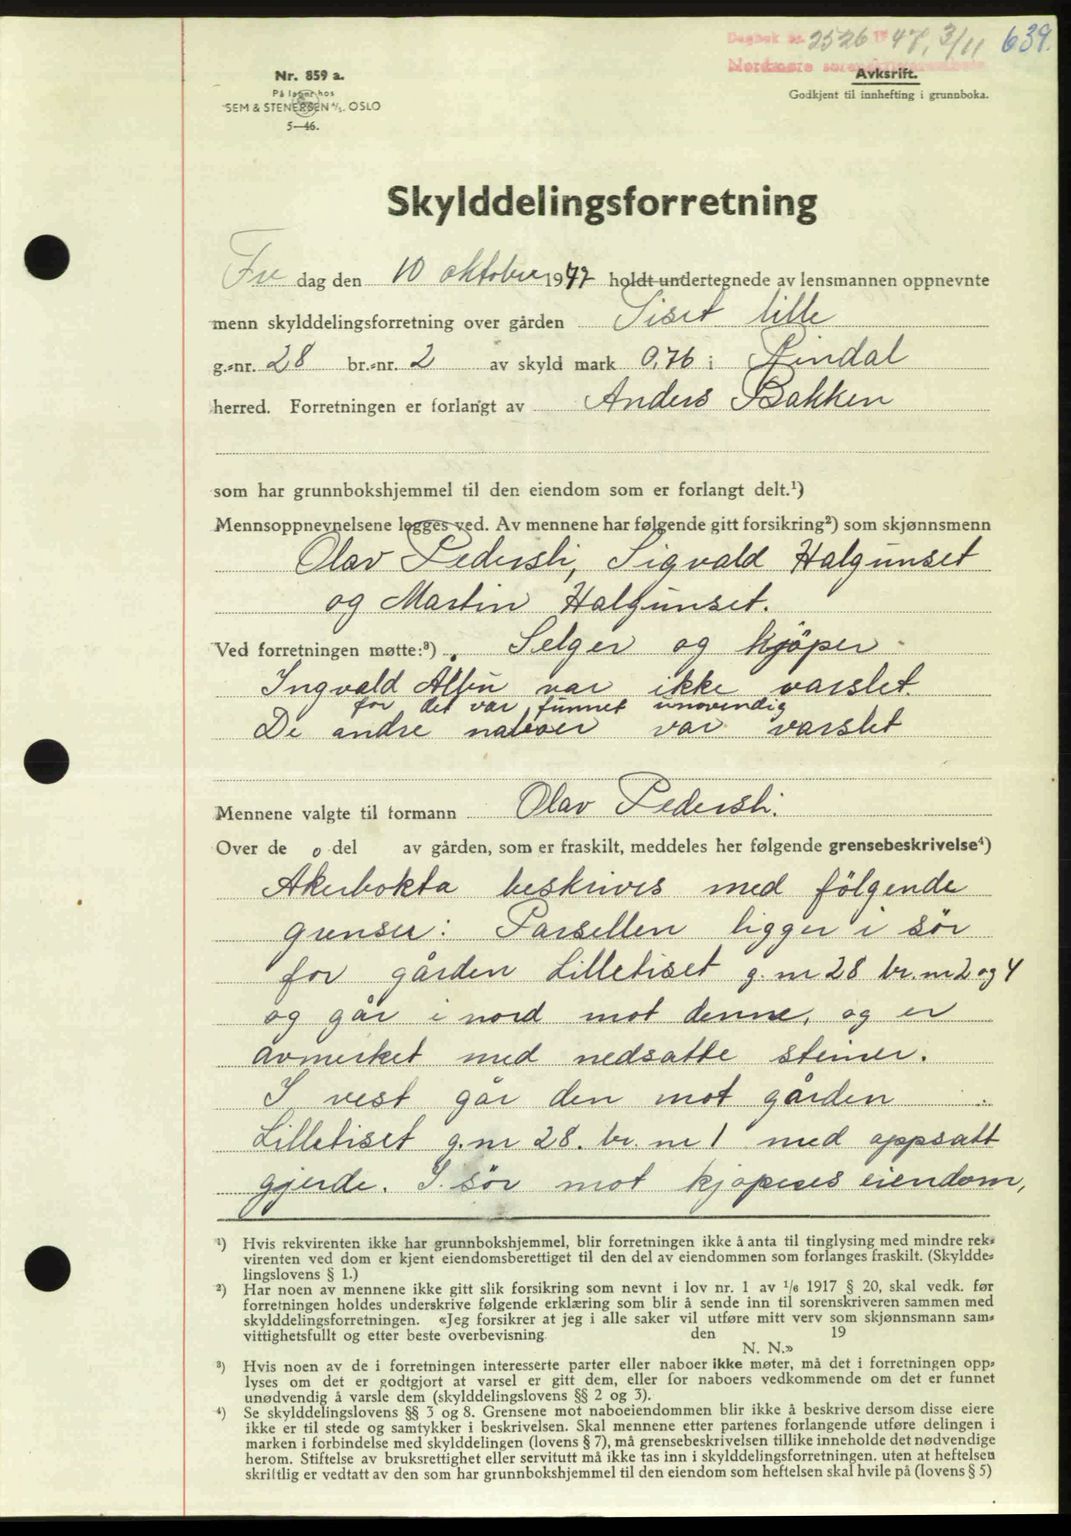 Dagbok nr. 2526 1947, 3/11 639.
Nordmøre sorenskriverembede
Nr. 859 a.
På lager hos
SEM & STENERSEN A/S. OSLO
5—46.
Avksrift.
Godkjent til innhefting i grunnboka.
Skylddelingsforretning
Fre dag den 10 oktober 1947 holdt undertegnede av lensmannen oppnevnte
menn skylddelingsforretning over gården Tiset lille
g.-nr. 28 br.-nr. 2 av skyld mark 0,76 i Rindal
herred. Forretningen er forlangt av Anders Bakken
som har grunnbokshjemmel til den eiendom som er forlangt delt.¹)
Mennsoppnevnelsene legges ved. Av mennene har følgende gitt forsikring²) som skjønnsmenn
Olav Pedersli, Sigvald Halgunset
og Martin Halgunset.
Ved forretningen møtte:³) Selger og kjöper
Ingvald Älfin var ikke varslet.
for det var funnet unövendig
De andre naboer var varslet
Mennene valgte til formann Olav Pedersli.
Over de o del av gården, som er fraskilt, meddeles her følgende grensebeskrivelse⁴)
Akerbokta beskrives med fölgende
grenser: Parsellen ligger i sör
for gården Lilletiset g.nr 28 br.nr 2 og 4
og går i nord mot denne, og er
avmerket med nedsatte steiner.
I vest går den mot gården
Lilletiset g.nr 28. br. nr 1 med oppsatt
gjerde. I sör mot kjöperes eiendom,
¹) Hvis rekvirenten ikke har grunnbokshjemmel, blir forretningen ikke å anta til tinglysing med mindre rek-
virenten ved dom er kjent eiendomsberettiget til den del av eiendommen som forlanges fraskilt. (Skyldde-
lingslovens § 1.)
²) Har noen av mennene ikke gitt slik forsikring som nevnt i lov nr. 1 av 1/6 1917 § 20, skal vedk. før
forretningen holdes underskrive følgende erklæring som blir å sende inn til sorenskriveren sammen med
skylddelingsforretningen. «Jeg forsikrer at jeg i alle saker vil utføre mitt verv som skjønnsmann sam-
vittighetsfullt og etter beste overbevisning. den 19
N. N.»
³) Hvis noen av de i forretningen interesserte parter eller naboer ikke møter, må det i forretningen opp-
lyses om det er godtgjort at varsel er gitt dem, eller for naboers vedkommende om det er funnet
unødvendig å varsle dem (skylddelingslovens §§ 2 og 3).
⁴) Se skylddelingslovens §§ 3 og 8. Grensene mot naboeiendommen blir ikke å beskrive dersom disse eiere
ikke er til stede og samtykker i beskrivelsen. Skal mennene etter partenes forlangende utføre delingen i
marken i forbindelse med skylddelingen (lovens § 7), må grensebeskrivelsen tillike inneholde det nødvendige
herom. Stiftelse av bruksrettighet eller servitutt må ikke tas inn i skylddelingsforretningen. uten at heftelsen
skriftlig er vedtatt av den som har grunnbokshjemmel til den eiendom som heftelsen skal hvile på (lovens § 5)